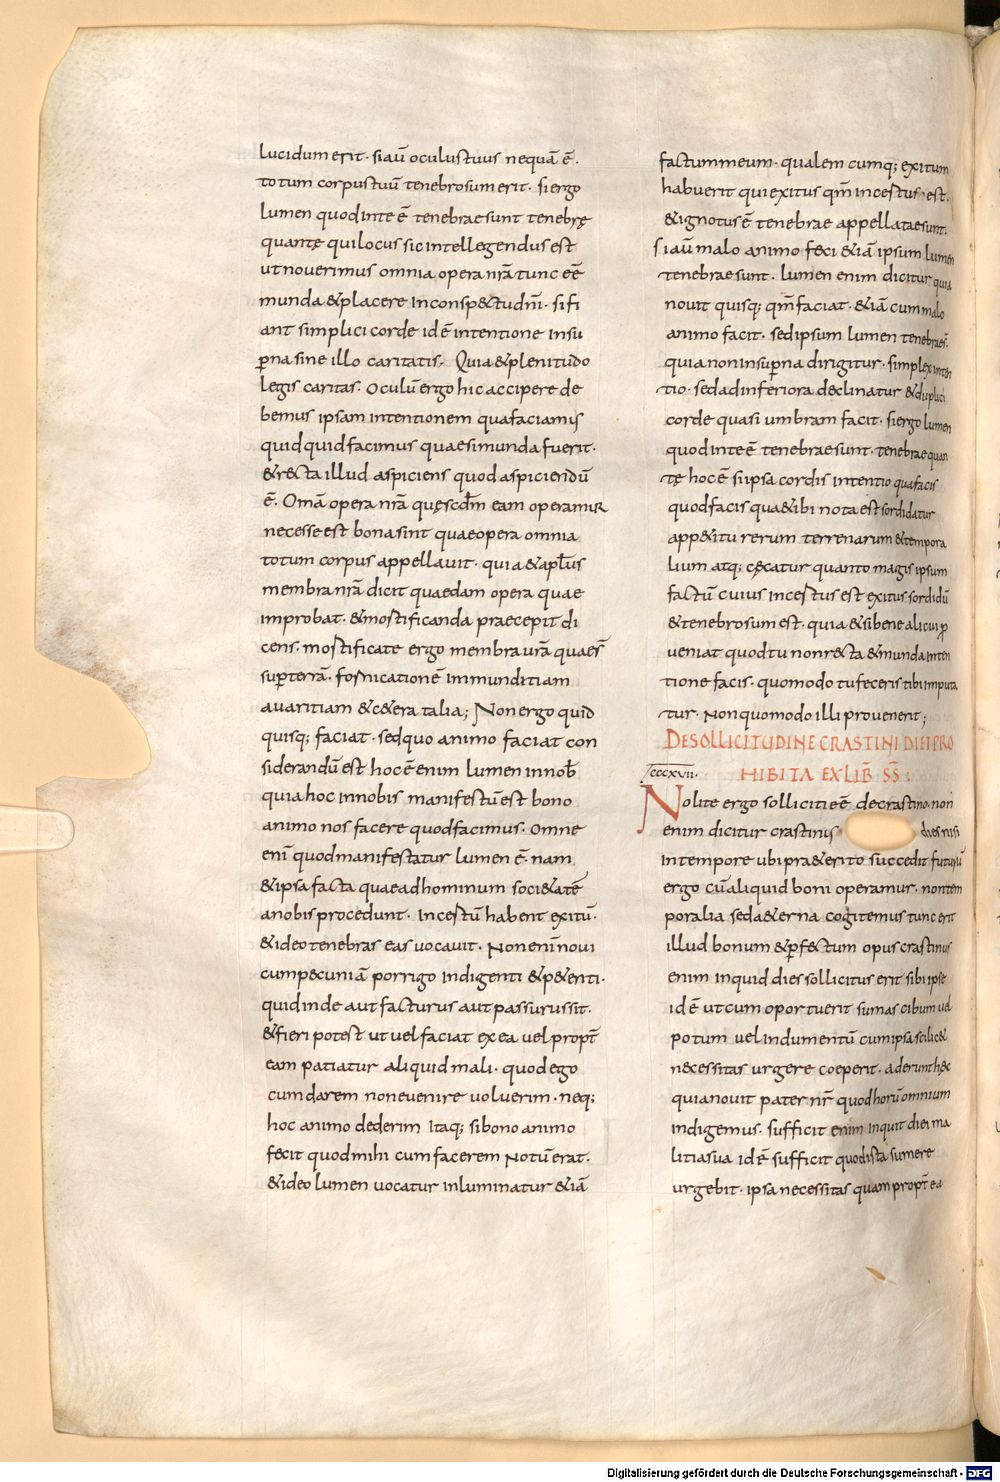 lucidum erit · si au̅ oculus tuus nequa̅ e̅ ·
totum corpus tuu̅ tenebrosum erit · si ergo
lumen quod in te e̅ tenebrae sunt tenebrę
quantę qui locus sic intellegendus est
ut noverimus omnia opera nr̅a tunc e̅e̅
munda & placere in conspectu dn̅i · si fi
ant simplici corde id e̅ intentione in su
ꝑna sine illo caritatis · Quia & plenitudo
legis caritas · Oculu̅ ergo hic accipere de
bemus ipsam intentionem qua faciamus
quidquid facimus quae si munda fuerit ·
& recta illud aspiciens quod aspiciendu̅
e̅ · Om̅a opera nr̅a quę scd̅m eam operamur
necesse est bona sint quae opera omnia
totum corpus appellavit · quia & apl̅us
membra nr̅a dicit quaedam opera quae
improbat · & mortificanda praecepit di
cens · mortificate ergo membra vr̅a quae s̅
suꝑ terra̅ · fornicatione̅ immunditiam
avaritiam & cetera talia; Non ergo quid
quisq; faciat · sed quo animo faciat con
siderandu̅ est hoc e̅ enim lumen in nob̅
quia hoc in nobis manifestu̅ est bono
animo nos facere quod facimus · Omne
eni̅ quod manifestatur lumen e̅ · nam
& ipsa facta quae ad hominum societate̅
a nobis procedunt · incertu̅ habent exitu̅ ·
& ideo tenebras eas vocavit · Non eni̅ novi
cum pecunia̅ porrigo indigenti & petenti ·
quid inde aut facturus aut passurus sit ·
& fieri potest ut vel faciat ex ea vel propt̅
eam patiatur aliquid mali · quod ego
cum darem non evenire voluerim · neq;
hoc animo dederim Itaq; si bono animo
feci & quod mihi cum facerem notu̅ erat ·
& ideo lumen vocatur inluminatur & ia̅
factum meum · qualem cumq; exitum
habuerit qui exitus qm̅ incertus est ·
& ignotus e̅ tenebrae appellatae sunt ·
Si au̅ malo animo feci & ia̅ ipsum lumen
tenebrae sunt · lumen enim dicitur quia
novit quisq; qm̅ faciat · & ia̅ cum malo
animo facit · sed ipsum lumen tenebrae s̅ ·
quia non in suꝑna dirigitur · simplex inten
tio · sed ad inferiora declinatur & duplici
corde quasi umbram facit · si ergo lumen
quod in te e̅ tenebrae sunt · tenebrae quan
tę hoc e̅ si ipsa cordis intentio qua facis
quod facis quae tibi nota est sordidatur
appetitu rerum terrenarum & tempora
lium atq; cęcatur quanto magis ipsum
factu̅ cuius incertus est exitus sordidu̅
& tenebrosum est · quia & si bene alicui ꝓ
veniat quod tu non recta & munda inten
tione facis · quomodo tu feceris tibi imputa
tur · non quomodo illi provenerit;
DE SOLLICITUDINE CRASTINI DIEI PRO
HIBITA EX LIB̅ S̅S̅ :
cccxvii ·
Nolite ergo solliciti e̅e̅ de crastino · non
enim dicitur crastinus dies nisi
in tempore ubi praeterito succedit futuru̅
ergo cu̅ aliquid boni operamur · non tem
poralia sed aeterna cogitemus tunc erit
illud bonum & ꝑfectum opus crastinus
enim inquid dies sollicitus erit sibi ipse
id e̅ ut cum oportuerit sumas cibum vel
potum vel indumentu̅ cum ipsa scilic&
necessitas urgere coeperit · aderunt hęc
quia novit pater nr̅ quod horu̅ omnium
indigemus · sufficit enim inquit diei ma
litia sua id e̅ sufficit quod ista sumere
urgebit · ipsa necessitas quam propt̅ ea
Digitalisierung gefördert durch die Deutsche Forschungsgemeinschaft - DFG